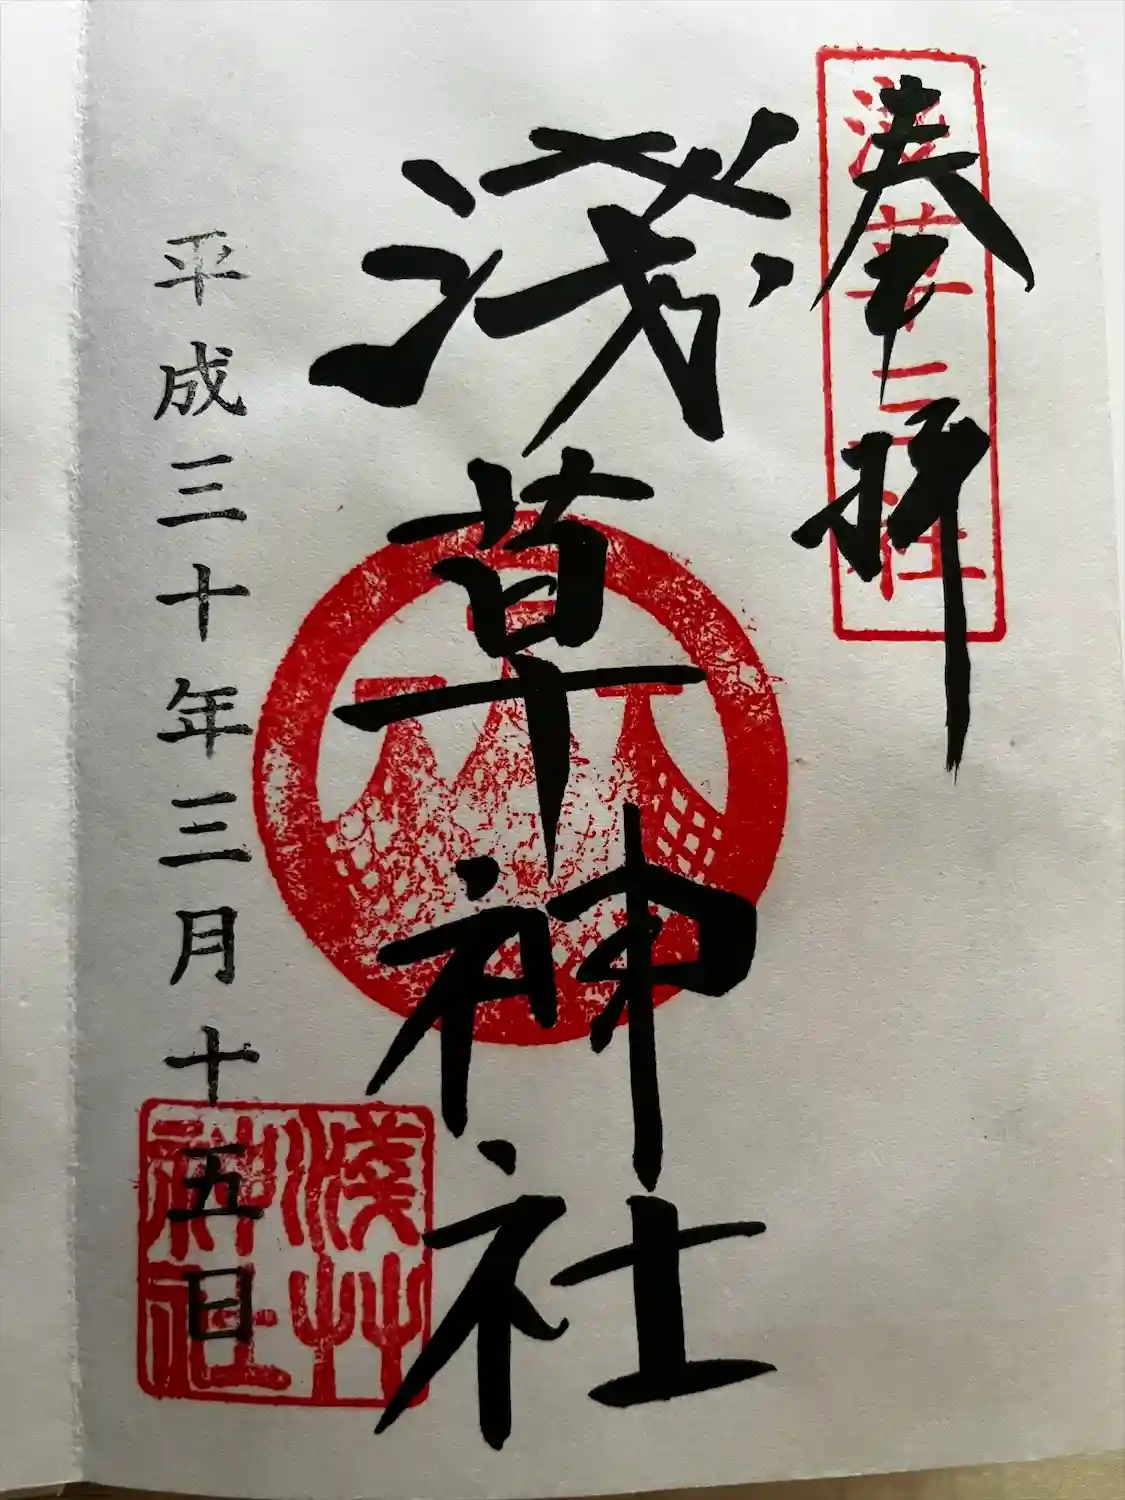 奉拝
淺草三社
淺草神社
平成三十年三月十五日
淺艸
神社